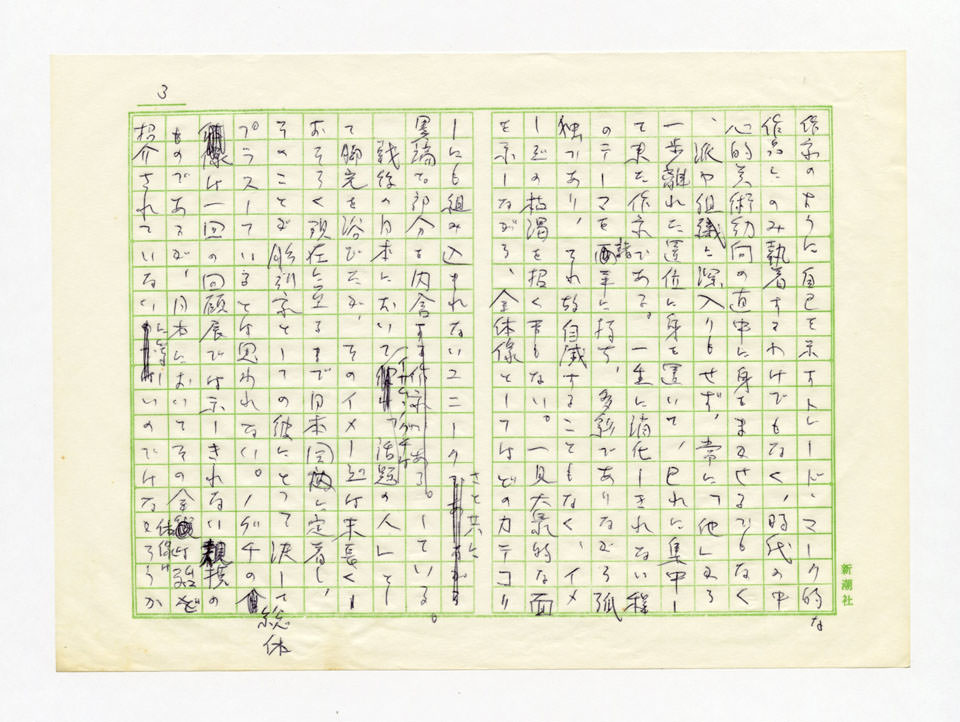 3
作家のように自己を示すトレード・マーク的な
作品にのみ執着するわけでもなく、時代の中
心的美術動向の直中に身をまかせるでもなく
、派や組織に深入りもせず、常に「他」から
一歩離れた位置に身を置いて、己れに集中し
て来た作家である。一生に消化しきれない程
のテーマを諸手に持ち、多彩でありながら孤
独であり、それ故自滅することもなく、イメ
ージの枯渇を招く事もない。一見大衆的な面
を示しながら、全体像としてはどのカテゴリ
ーにも組み込まれないユニークさと共に
異端で部分を内含する作家である。している。
戦後の日本においてイサム・ノグチは「話題の人」とし
て脚光を浴びたが、そのイメージは末長くし
おそらく現在に至るまで日本国内に定着し、
そのことが彫刻家としての彼にとって決して
プラスしているとは思われない。ノグチの総体
像は一回の回顧展では示しきれない規模の
ものであるが、日本においてその全体像は殆ど
紹介されていないに等しいのではなかろうか
新潮社